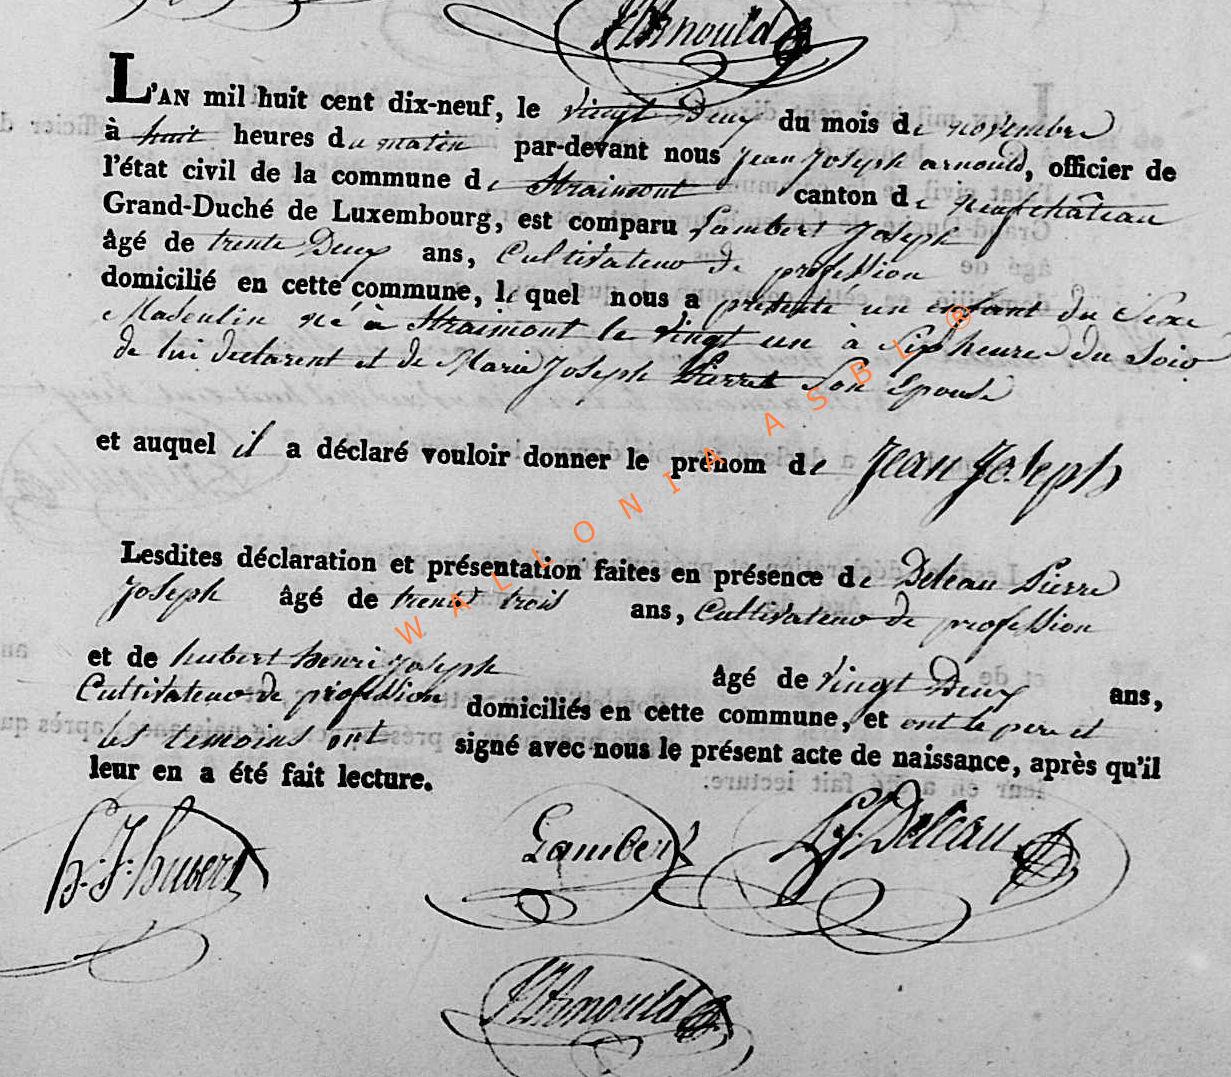 J J Arnould
L'AN mil huit cent dix-neuf, le vingt Deux du mois de novembre
à huit heures du matin par-devant nous jean joseph arnould, officier de
l'état civil de la commune de Straimont canton de neufchâteau
Grand-Duché de Luxembourg, est comparu Lambert joseph
âgé de trente Deux ans, Cultivateur de profession
domicilié en cette commune, lequel nous a présenté un enfant du Sexe
Masculin né à Straimont le vingt un à Sept heures du Soir
de lui declarent et de Marie Joseph Pierret Son Epouse
et auquel il a déclaré vouloir donner le prénom de Jean Joseph
Lesdites déclaration et présentation faites en présence de Deleau Pierre
Joseph âgé de trente trois ans, Cultivateur de profession
et de hubert henri joseph âgé de vingt Deux ans,
Cultivateur de profession domiciliés en cette commune, et ont le pere et
les temoins ont signé avec nous le présent acte de naissance, après qu'il
leur en a été fait lecture.
h. J. hubert Lambert P J Deleau
J J Arnould
WALLONIA ASBL ®